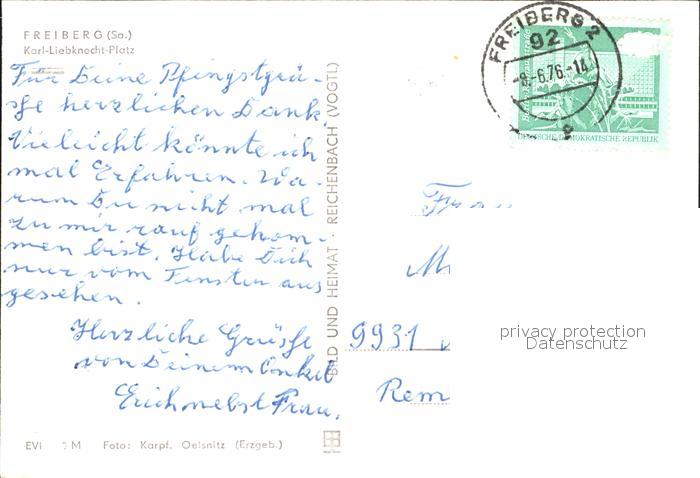 FREIBERG (Sa.)
Karl-Liebknecht-Platz
Für Deine Pfingstgrü-
sse herzlichen Dank,
Vieleicht könnte ich
mal Erfahren. Wa-
rum Du nicht mal
zu mir rauf gekom-
men bist. Habe Dich
nur vom Fenster aus
gesehen.
Herzliche Grüsse
von Deinem Onkel
Erich nebst Frau.
EVi M Foto: Karpf, Oelsnitz (Erzgeb.)
BILD UND HEIMAT · REICHENBACH (VOGTL)
FREIBERG 2
92
-8.-6.76.-14
DEUTSCHE DEMOKRATISCHE REPUBLIK
Frau
M
9931
Rem
privacy protection
Datenschutz